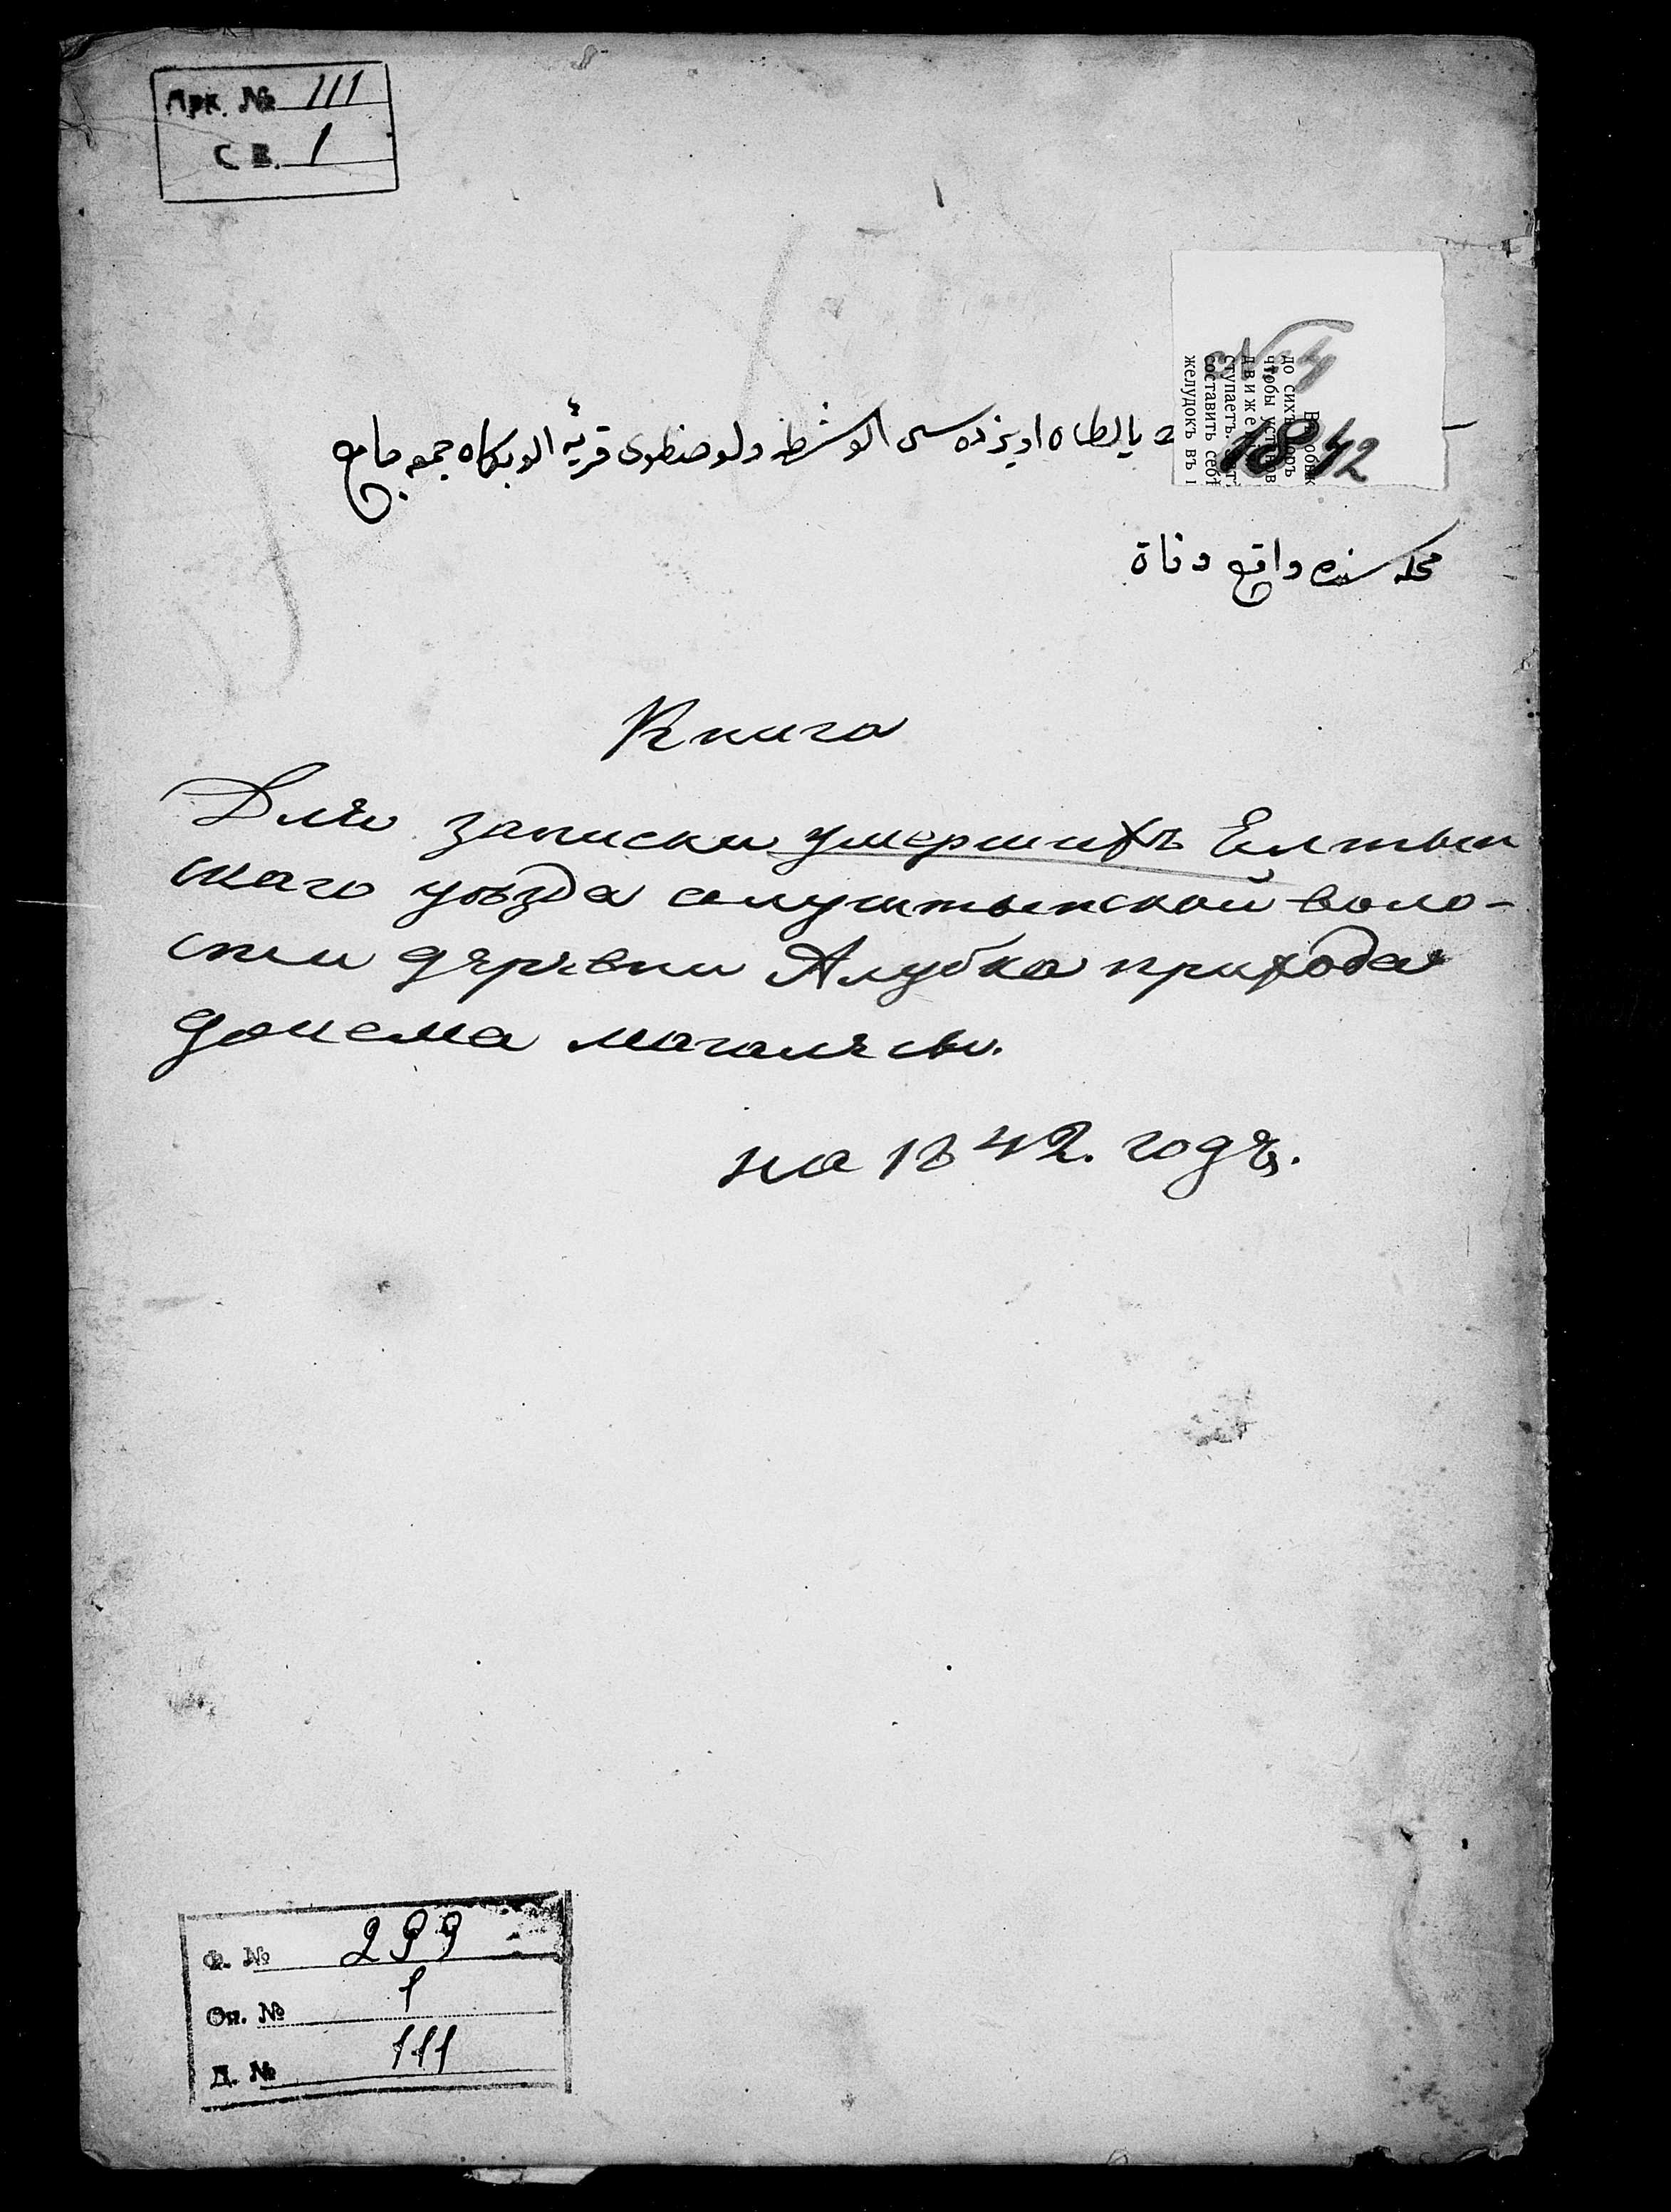 Арх. № 111
С В. 1
В
до сихъ поръ
чтобы
движе
ступаетъ.
составить себѣ
желудокъ въ
№ 4
1842
يالطه اويزده سى الوشطه ولوصطوى قريۀ الوبكاه جمعه جامع
محله سنده واقع وفاة
Книга
Для записки умершихъ Елтын
скаго уѣзда алуштынской воло-
сти деревни Алубка прихода
джема магалясы.
на 1842. годъ.
Ф. № 299
Оп. № 1
Д. № 111